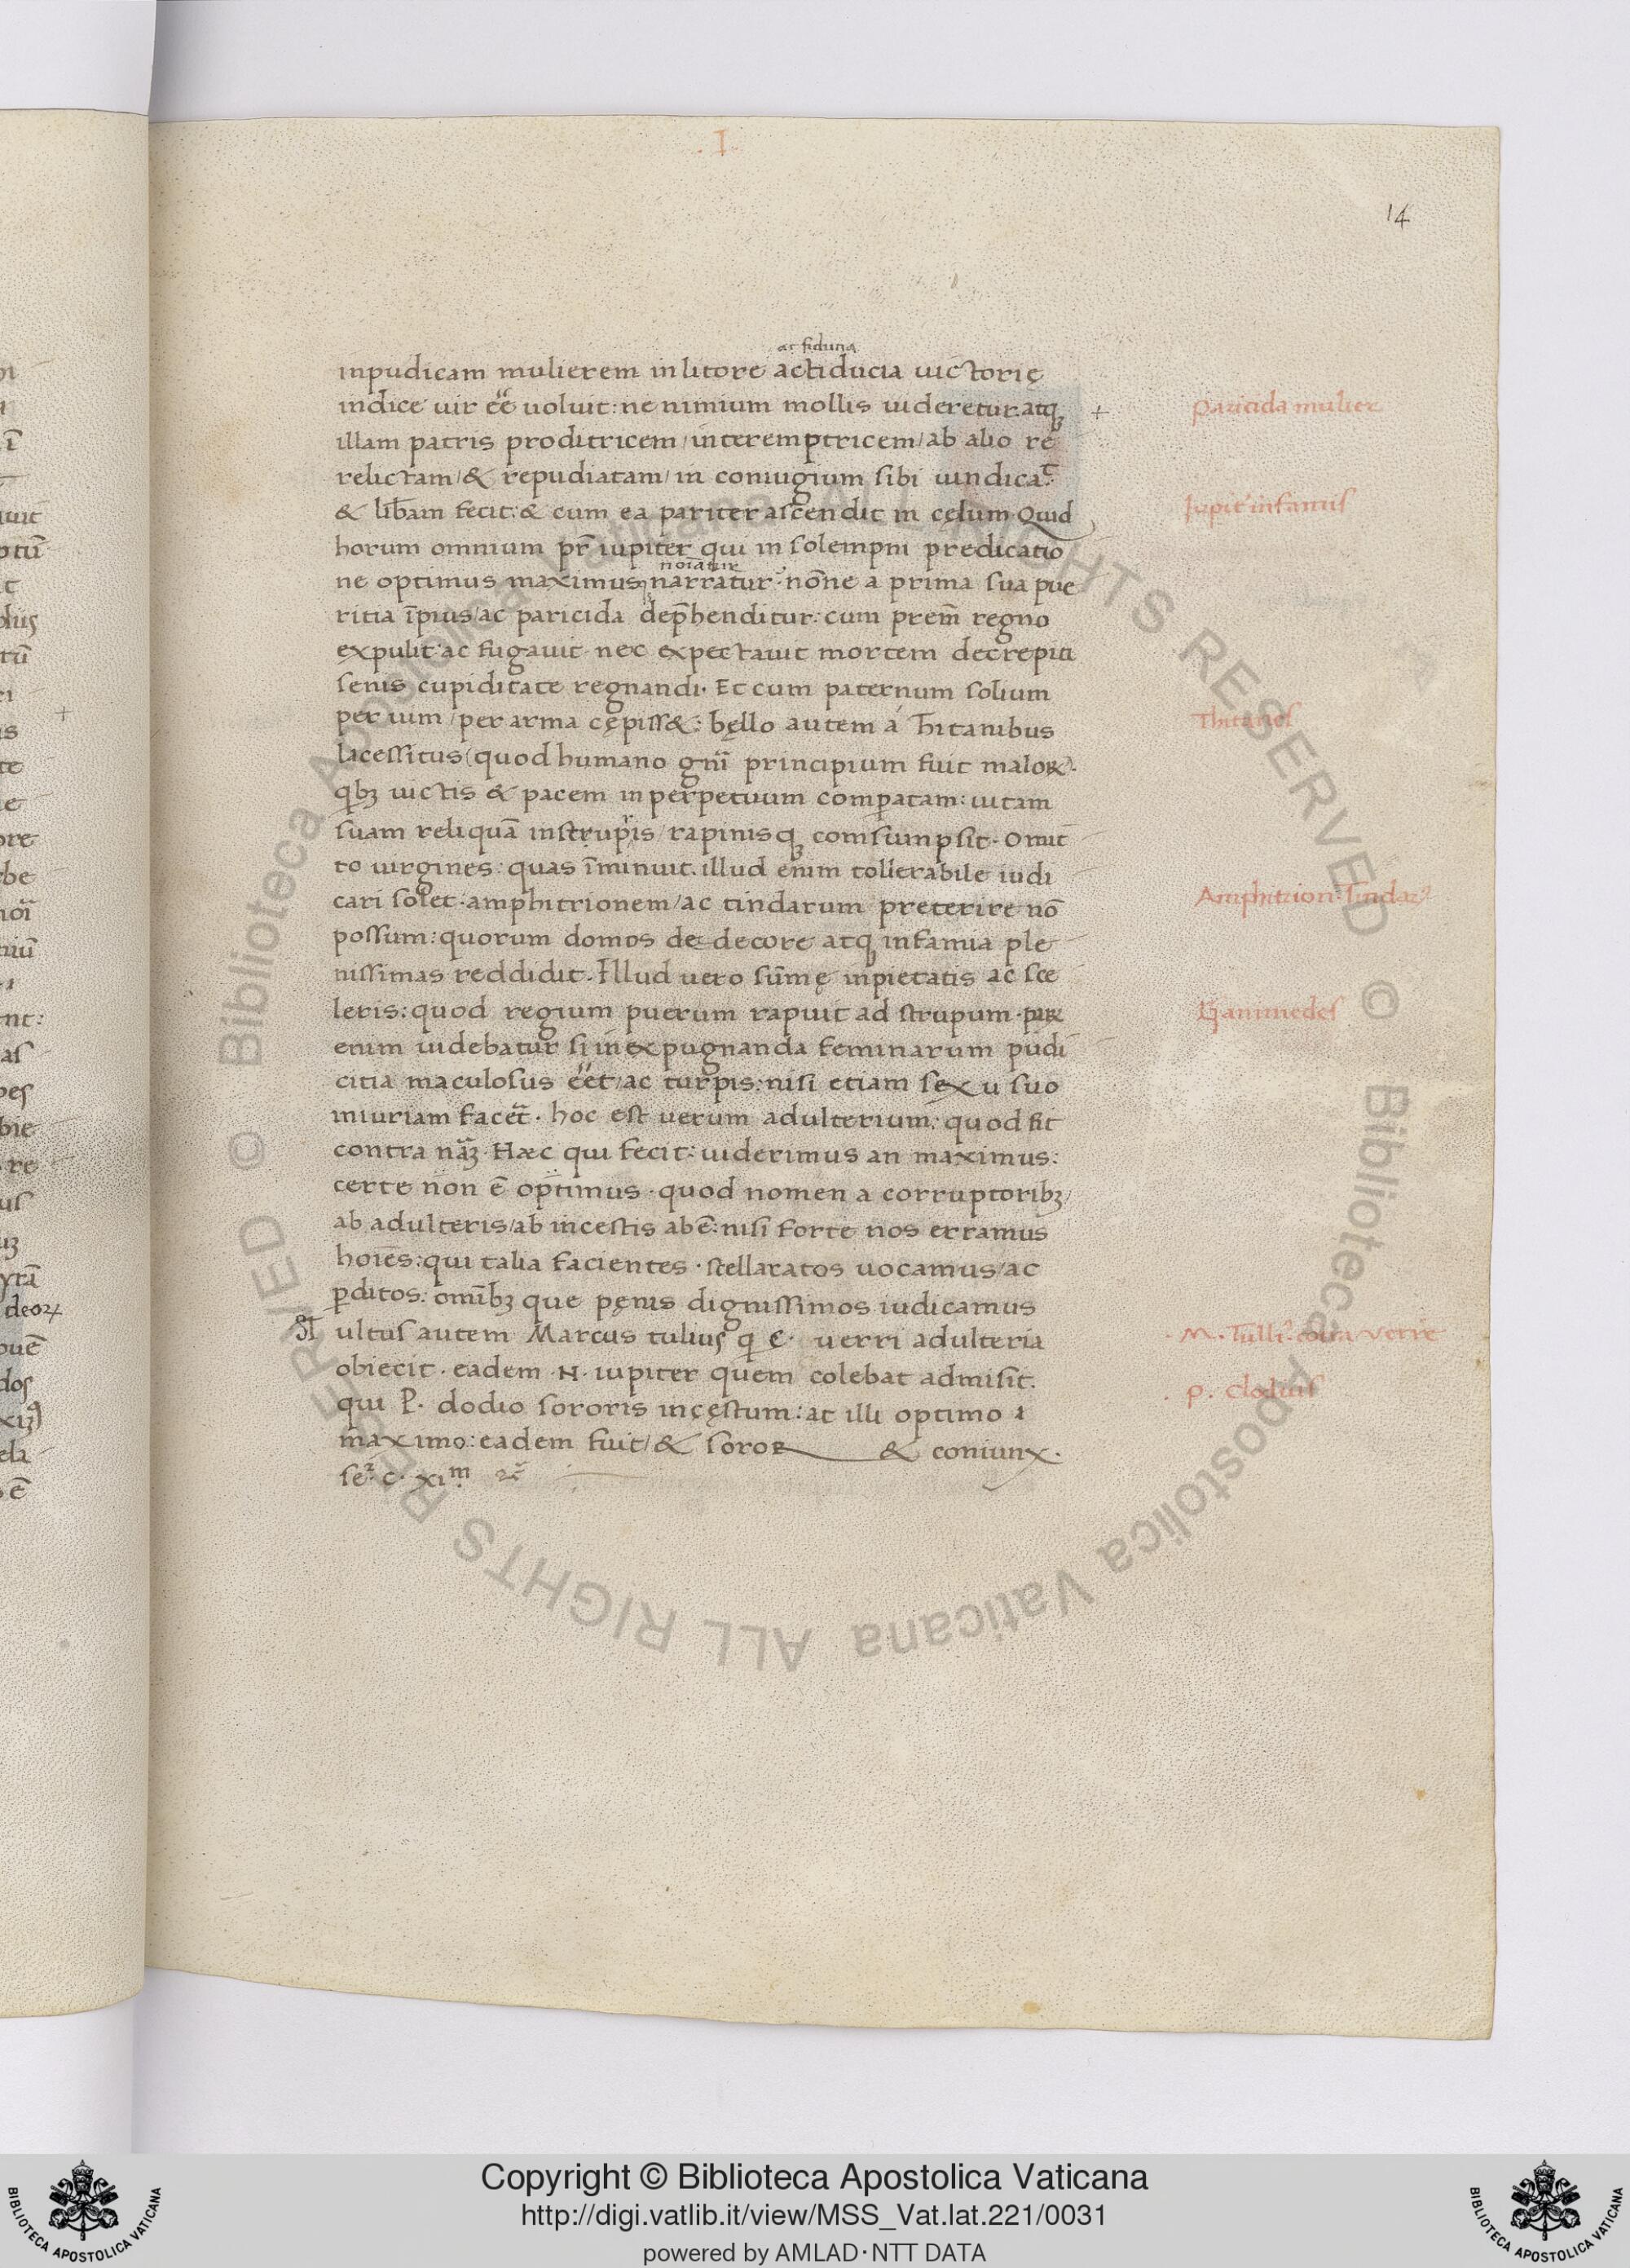 . I
14
ac fiducia
inpudicam mulierem in litore actiducia uictorię
indice uir eē uoluit: ne nimium mollis uideretur. atqꝫ
illam patris proditricem / interemptricem / ab alio re
relictam / & repudiatam / in coniugium sibi uindicat.
& lib̄am fecit: & cum ea pariter ascendit in cęlum. Quid
horum omnium pr̄ iupiter qui in solempni predicatio
noīatur
ne optimus maximusqꝫ narratur: nōne a prima sua pue
ritia īpius / ac paricida dep̄henditur: cum prem̄ regno
expulit: ac fugauit nec expectauit mortem decrepiti
senis cupiditate regnandi. Et cum paternum solium
per uim / per arma cępiss&: bęllo autem á Thitanibus
lacessitus (quod humano gn̄i principium fuit maloꝝ).
qbꝫ uictis & pacem in perpetuum comparatam: uitam
suam reliquā instrupris / rapinisqꝫ comsumpsit. Omit
to uirgines: quas īminuit. illud enim tollerabile iudi
cari solet: amphitrionem / ac tindarum preterire nō
possum: quorum domos dedecore atqꝫ infamia ple
nissimas reddidit. Illud uero sum̄ę inpietatis ac sce
leris: quod regium puerum rapuit ad strupum. paꝝ
enim uidebatur si in expugnanda feminarum pudi
citia maculosus eēt / ac turpis: nisi etiam sexu suo
iniuriam facēt. hoc est uerum adulterium: quod fit
contra nāꝫ. Hæc qui fecit: uiderimus an maximus:
certe non ē optimus. quod nomen a corruptoribꝫ /
ab adulteris / ab incestis abē: nisi forte nos erramus
hoīes: qui talia facientes. scellaratos uocamus / ac
ꝑditos: omībꝫ que pęnis dignissimos iudicamus
M ultus autem Marcus tulius q C. uerri adulteria
obiecit. eadem .N. iupiter quem colebat admisit.
qui P. clodio sororis incęstum: at illi optimo
maximo: eadem fuit / & soror & coniunx.
se2. C. xim
Paricida mulier
Jupit' infamis
Thitanes
Amphitrion. tindar9
Ganimedes
. M. Tulli9. cont̄a Verrē
. P. Clodius
Copyright © Biblioteca Apostolica Vaticana
http://digi.vatlib.it/view/MSS_Vat.lat.221/0031
powered by AMLAD·NTT DATA